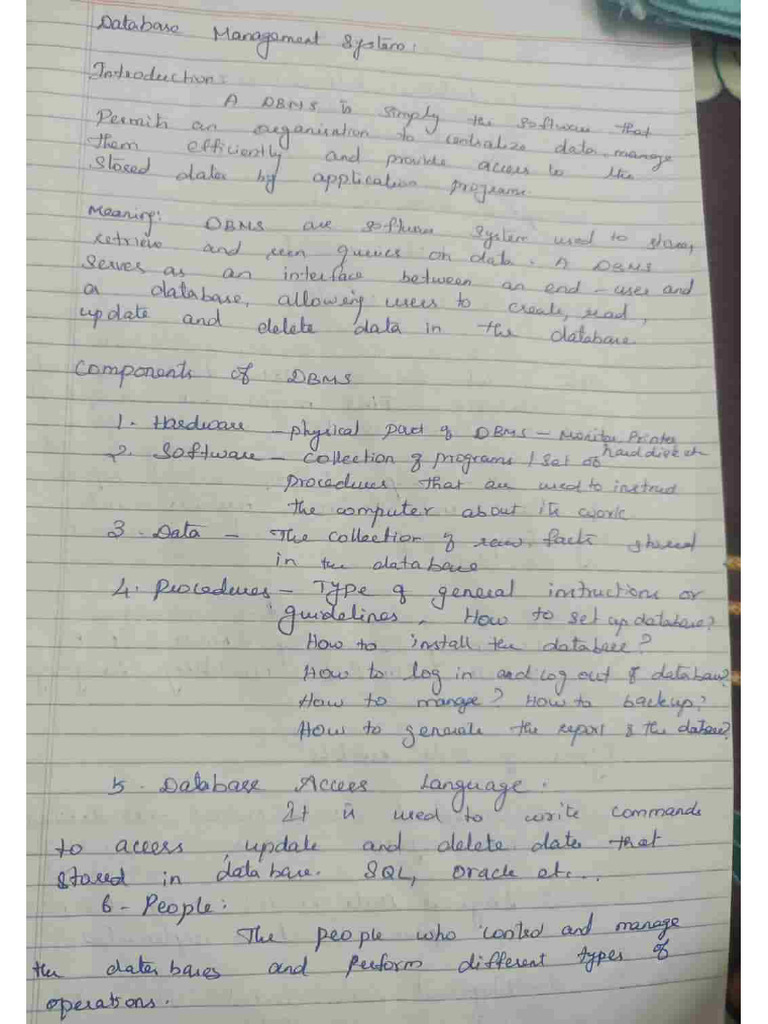 Database Management System:
Introduction:
A DBMS is simply the software that
Permits an organisation to centralize data, manage
them efficiently and provide access to the
stored data by application programs
Meaning: DBMS are software system used to store,
retrieve and run queries on data. A DBMS
serves as an interface between an end-user and
a database, allowing users to create, read,
update and delete data in the database
Components of DBMS
1. Hardware - physical part of DBMS - Monitor, Printer
hard disk etc
2. Software - Collection of programs / set of
procedures that are used to instruct
the computer about its work
3. Data - The collection of raw facts stored
in the database
4. Procedures - Type of general instructions or
guidelines. How to set up database?
How to install the database?
How to log in and log out of database?
How to manage? How to backup?
How to generate the report of the database?
5. Database Access Language.
It is used to write commands
to access, update and delete data that
stored in database. SQL, Oracle etc...
6 - People:
The people who control and manage
the data bases and perform different types of
operations.